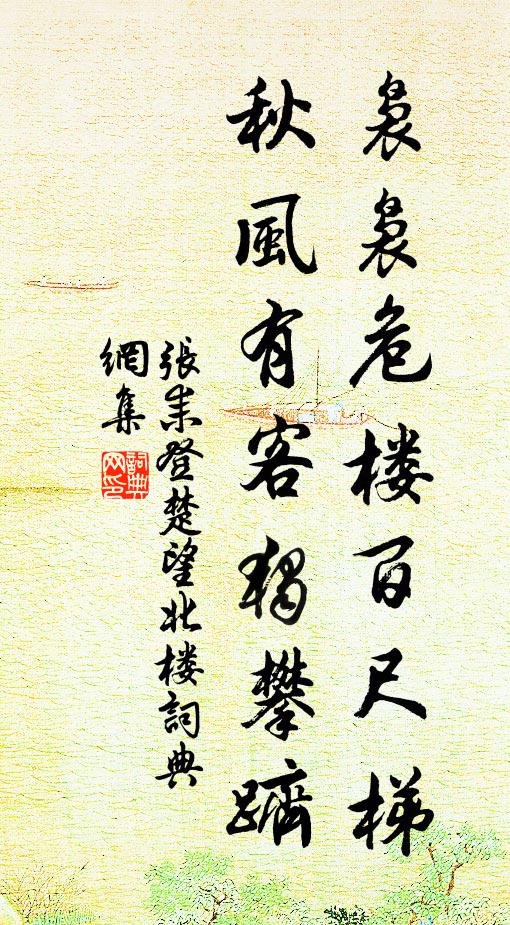 裊裊危楼百尺梯
秋風有客独攀躋
張耒登楚望北楼詞典
網集
詞典
网印